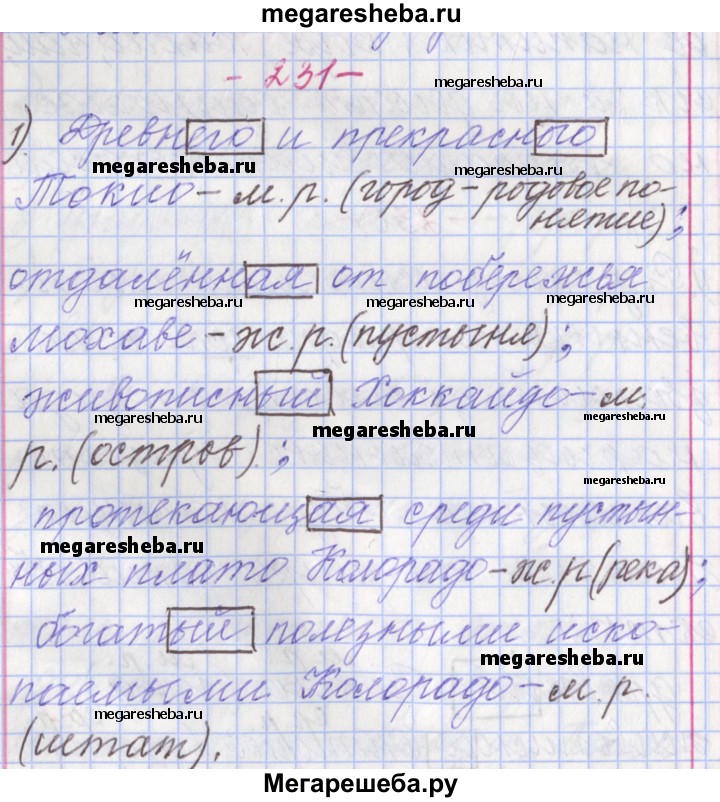 megaresheba.ru
- 231 -
megaresheba.ru
1). Древнего и прекрасного
megaresheba.ru
megaresheba.ru
Токио - м. р. (город - родовое по-
нятие);
отдалённая от побережья
megaresheba.ru megaresheba.ru megaresheba.ru
Мохаве - ж. р. (пустыня);
живописный Хоккайдо - м.
megaresheba.ru megaresheba.ru megaresheba.ru
р. (остров);
megaresheba.ru
протекающая среди пустын-
megaresheba.ru
ных плато Колорадо - ж. р (река);
megaresheba.ru
богатый полезными иско-
megaresheba.ru
паемыми Колорадо - м. р.
megaresheba.ru
(штат).
megaresheba.ru
Мегарешеба.ру